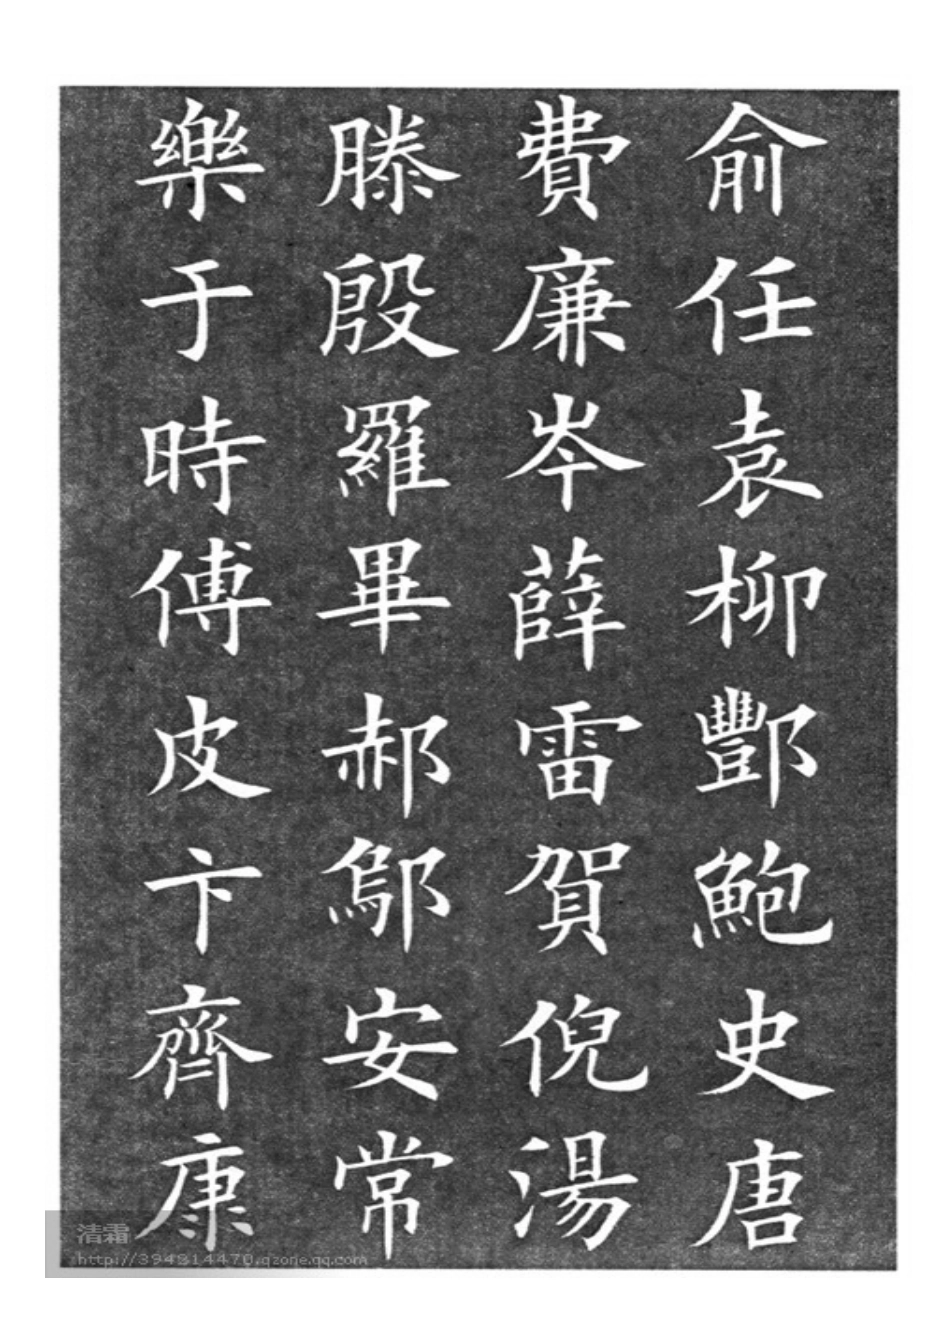 俞任袁柳酆鮑史唐
費廉岑薛雷賀倪湯
滕殷羅畢郝鄔安常
樂于時傅皮卞齊康
清霜
http://394814470.qzone.qq.com